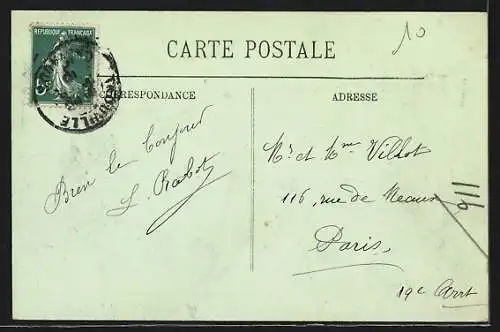 10
REPUBLIQUE FRANÇAISE
CARTE POSTALE
CORRESPONDANCE
ADRESSE
Bien le bonjour
L. Rabot
Mr et Mme Villot
116, rue de Meaux
Paris
19e Arrt
114